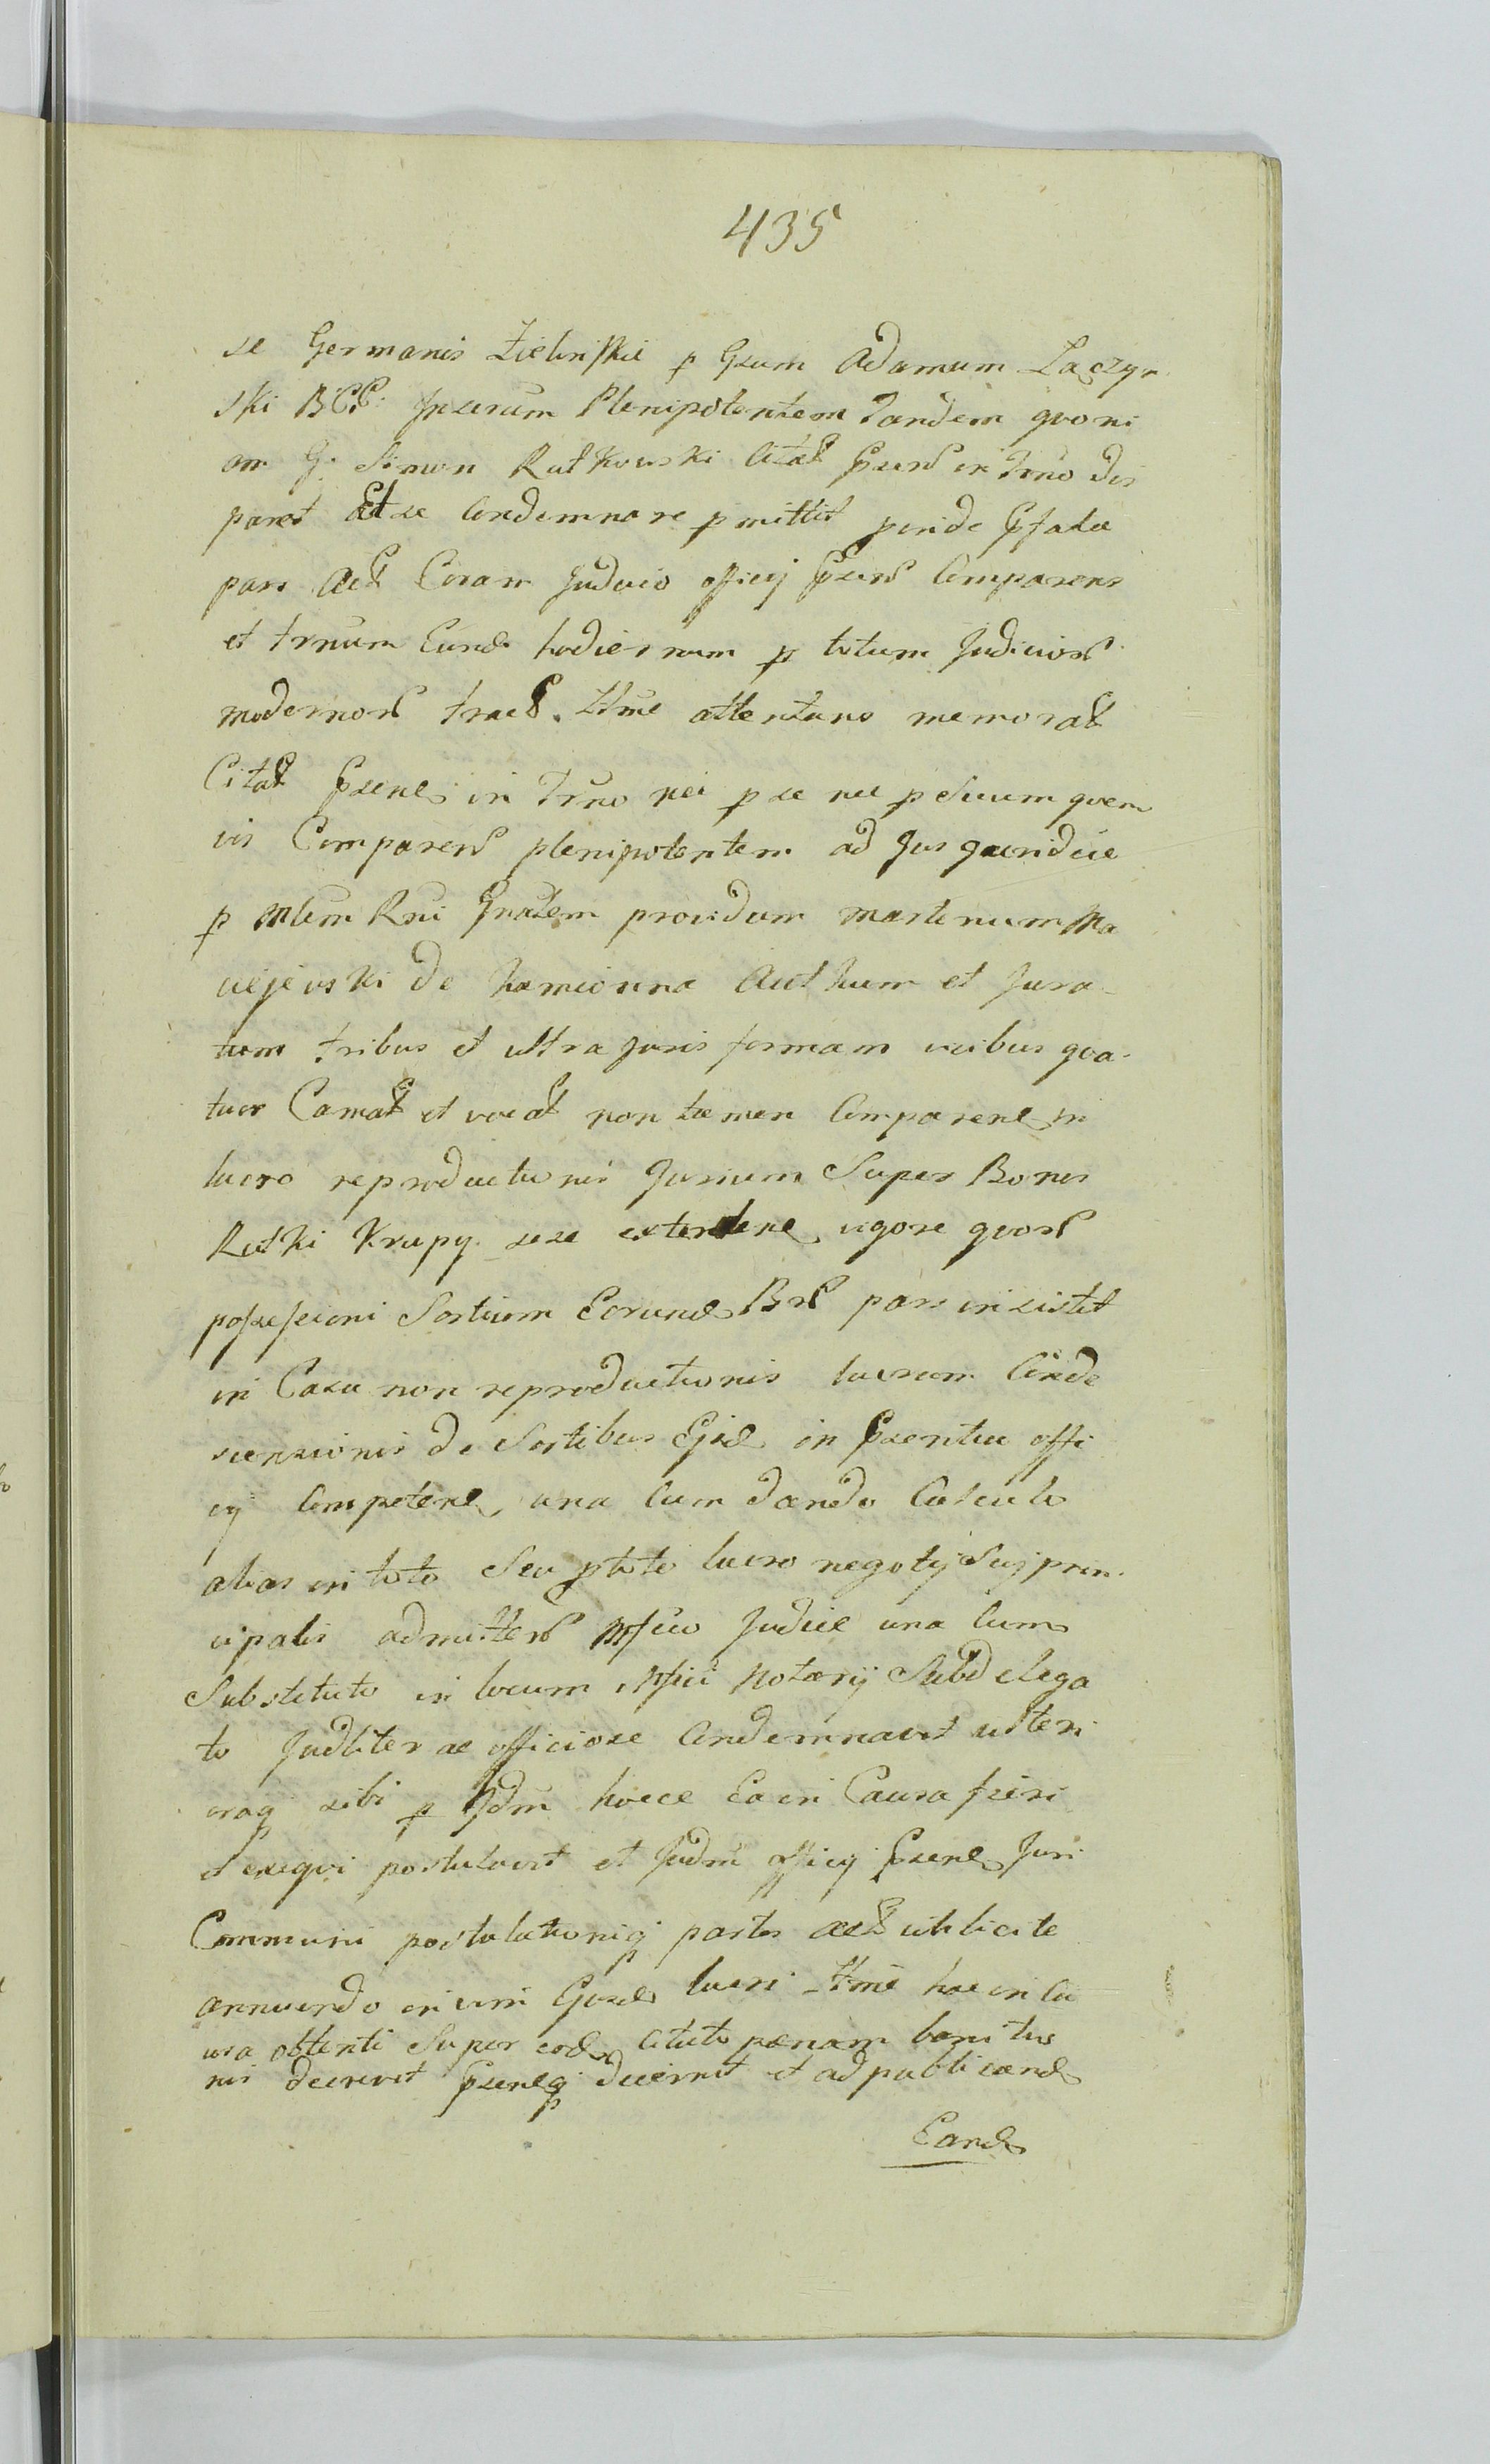 435
se Germanis Zielinskie p Gsum Adamum Łączyn
ski BCC: Inserum Plenipotentem Tandem quoni
am G. Simon Rutkowski Citat in Trno dis
paret Et se Condemnare pmittit proide
pars Act Coram Judicio officij Comparens
et trnum Eund hodiernum p totum Judicior
modernor tract. Ittme attentans memorat
Citat Psens in Trno nec p se nec p Suum quem
vis Comparen plenipotentem ad Jus quendie
p Mlem Rni Gnalem providum Martinum Ma
ciejewski de Kamionna Authum et Jura-
tum tribus et ultra juris formam vicibus qua-
tuor Camat et vocat non tamen Comparen in
lucro reproductionis Jurium Super Bonis
Rutki Krupy sese extenden vigore quor
possessioni Sortium Eorund Br pars insistit
in Casu non reproductionis lucrum Conde
scensionis de Sortibus Ejsd in Psentia offi
cij Competen, una Cum dando Calculo
alias in toto Seu p toto lucro negotij Suj prin-
cipalis admitten Mfico Judice una Cum
Substituto in locum Mfici Notarij Subdelega
to Judliter ac officiose Condemnavit ulteri
oraq sibi p Jdm hocce Ea in Causa fieri
et exequi postulavit et Judm officij Psens Juri
Communi postulationiq partis act uti licite
annuendo in vim Ejusd lucri Ittme hac in Ca
usa obtenti Super eod Citato paenam banitio
nis decrevit Psensq decernit et ad publicand
Eand